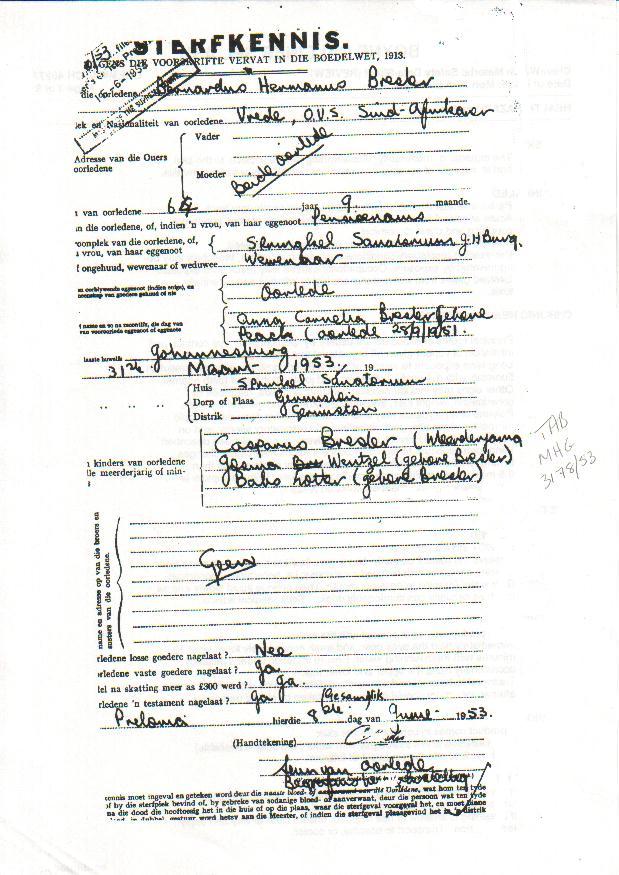 STERFKENNIS.
DIE VOORSKRIFTE VERVAT IN DIE BOEDELWET, 1913.
die oorledene Bernardus Hermanus Bresler
lek en Nasionaliteit van oorledene Vrede, O.V.S. Suid-Afrikaner
Adresse van die Ouers
oorledene
Vader
Moeder
Beide oorlede
van oorledene 64 jaar 9 maande.
an die oorledene, of, indien 'n vrou, van haar eggenoot Pensioenaris
woonplek van die oorledene, of,
vrou, van haar eggenoot
Springkel Sanatorium J.H.Burg.
ongehuud, wewenaar of weduwee Wewenaar
Oorlede
Anna Cornelia Bresler gebore
(oorlede 28/9/1951.
laaste huwelik Johannesburg
31ste Maart 1953. 19
Huis Springkel Sanatorium
Dorp of Plaas Germiston
Distrik Germiston
kinders van oorledene
lle meerderjarig of min-
Casparus Bresler (Meerderjarig
Gesina Wentzel (gebore Bresler)
Babs Lotter (gebore Bresler)
TAB
MHG
3178/53
name en adresse op van die broers en
susters van die oorledene.
Geen
rledene losse goedere nagelaat? Nee
orledene vaste goedere nagelaat? Ja
del na skatting meer as £300 werd? Ja.
rledene 'n testament nagelaat? Ja (Gesamtlik
Pretoria hierdie 8ste dag van Junie 1953.
(Handtekening)
Seun van oorledene
tennis moet ingevul en geteken word deur die naaste bloed- of aanverwant van die Oorledene, wat hom ten tyde
of by die sterfplek bevind of, by gebreke van sodanige bloed- of aanverwant, deur die persoon wat ten tyde
na die dood die hooftoesig het in die huis of op die plaas, waar die sterfgeval voorgeval het, en moet binne